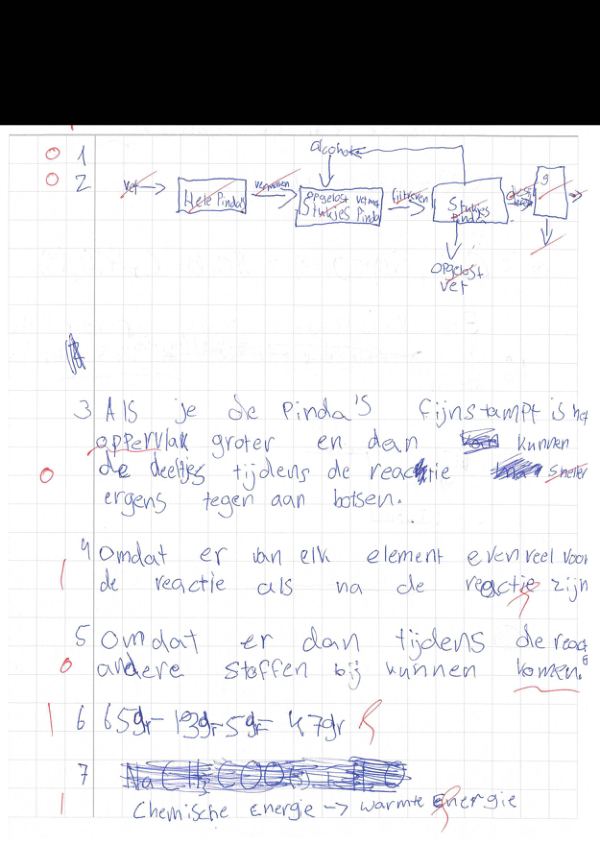 0 1
alcohol
0 2
vet → Hele Pinda's vermalen Opgelost vet met Stukjes Pinda filtreren Stukjes pinda
opgelost
vet
3 Als je de Pinda's fijnstampt is het
oppervlak groter en dan kunnen
0 de deeltjes tijdens de reactie sneller
ergens tegen aan botsen.
4 Omdat er van elk element evenveel voor
1 de reactie als na de reactie zijn
5 Omdat er dan tijdens de react
0 andere stoffen bij kunnen komen.
1 6 65gr-13gr-5gr= 47gr
7
1 Chemische Energie -> warmte Energie